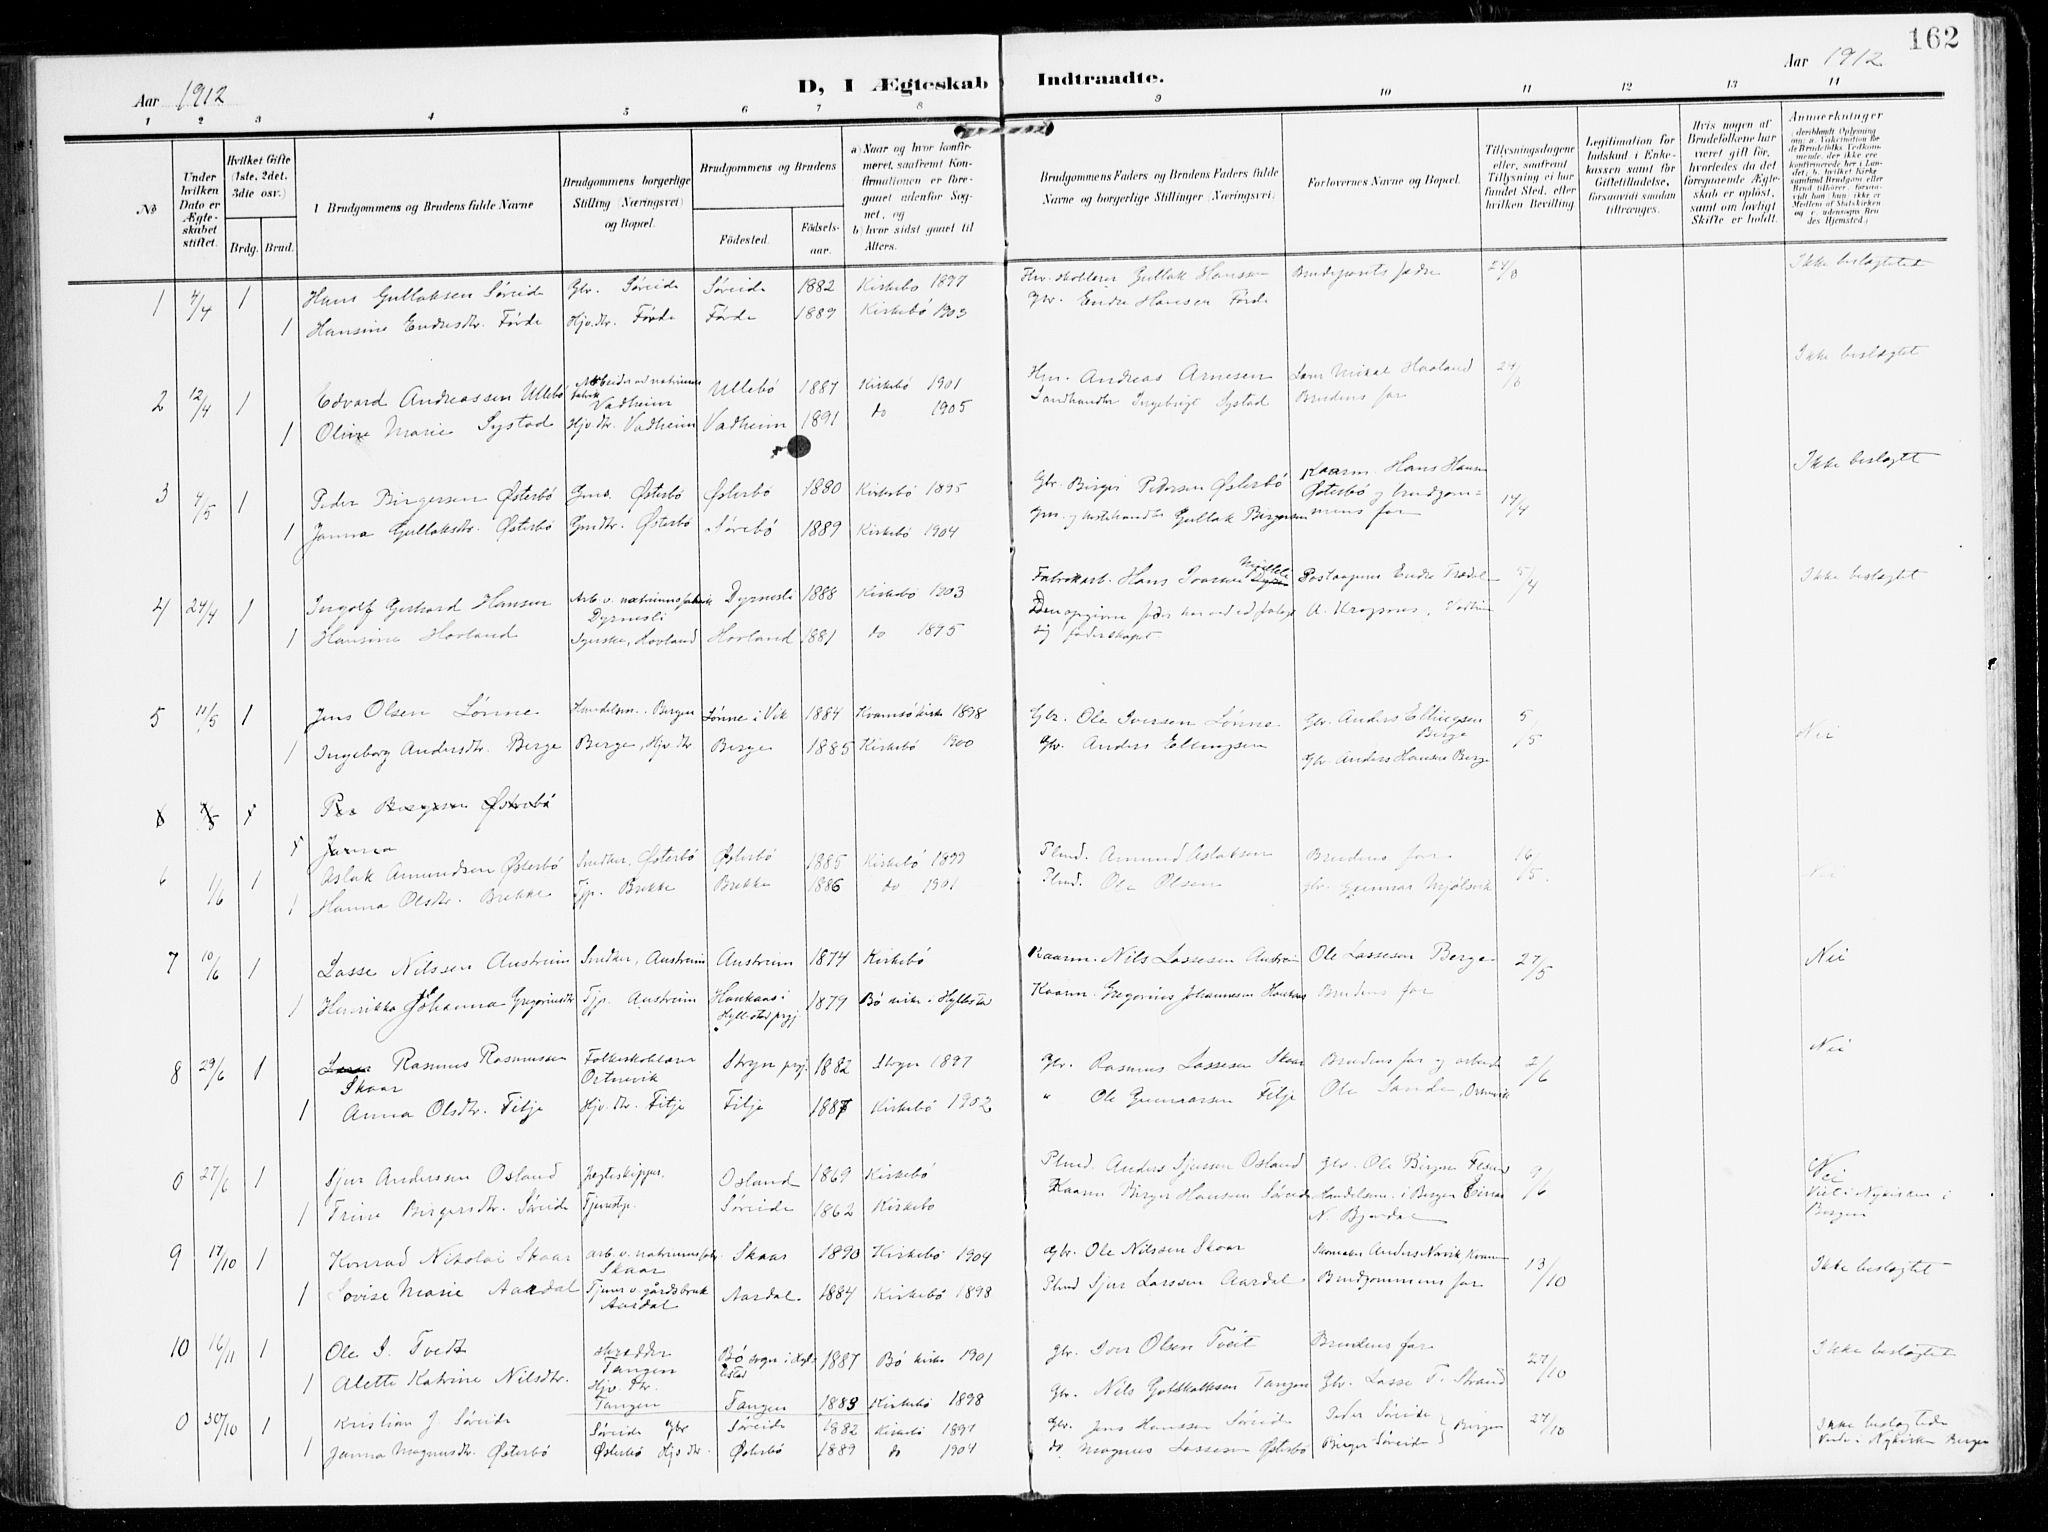 162
Aar 1912
D, I Ægteskab Indtraadte.
Aar 1912
1 2 3 4 5 6 7 8 9 10 11 12 13 14
No
Under hvilken Dato er Ægteskabet stiftet.
Hvilket Gifte (1ste, 2det, 3die osv.)
Brdg. Brud.
Brudgommens og Brudens fulde Navne
Brudgommens borgerlige Stilling (Næringsvei) og Bopæl.
Brudgommens og Brudens
Födested. Födselsaar.
a) Naar og hvor konfirmeret, saafremt Konfirmationen er foregaaet udenfor Sognet, og
b) hvor sidst gaaet til Alters.
Brudgommens Faders og Brudens Faders fulde Navne og borgerlige Stillinger (Næringsvei.)
Forlovernes Navne og Bopæl.
Tillysningsdagene eller, saafremt Tillysning ei har fundet Sted, efter hvilken Bevilling
Legitimation for Indskud i Enkekassen samt for Giftetilladelse, forsaavidt saadan tiltrænges.
Hvis nogen af Brudefolkene har været gift för, hvorledes da det foregaaende Ægteskab er oplöst, samt om lovligt Skifte er holdt.
Anmerkninger
1 4/4 1 Hans Gullaksen Søreide Gbr. Søreide Søreide 1882 Kirkebø 1897 Gullak Hansen Brudeparets fædre 24/3 Ikke beslægtet
1 Hansine Endresdtr. Førde Hjv.dtr. Førde Førde 1889 Kirkebø 1903 Gbr. Endre Hansen Førde
2 12/4 1 Edvard Andreassen Ullebø Arbeider ved natriumsfabrik Vadheim Ullebø 1887 Kirkebø 1901 Hm. Andreas Arnesen Lars Mikal Hovland 24/3 Ikke beslægtet
1 Oline Marie Systad Hjv.dtr. Vadheim Vadheim 1891 do 1905 Landhandler Ingebrigt Systad Brudens far
3 4/5 1 Peder Birgersen Østerbø Gmd. Østerbø Østerbø 1880 Kirkebø 1895 Gbr. Birger Pedersen Østerbø Kaarm. Hans Hansen Østerbø og brudgommens far 14/4 Ikke beslægtet
1 Janna Gullaksdtr. Østerbø Gmdtr. Østerbø Sørebø 1889 Kirkebø 1904 Gm. og hestehandler Gullak Birgersen
4 24/4 1 Ingolf Gerhard Hansen Arb. v. natriumsfabrik Dyrnesli Dyrnesli 1888 Kirkebø 1903 Fabrikarb. Hans Iversen Postaapner Endre Trædal 5/4 Ikke beslægtet
1 Hansine Hovland Syerske, Hovland Hovland 1881 do 1895 Den opgivne far har ved ed fralagt sig farskapet A. Krognes, Vadheim
5 11/5 1 Jens Olsen Lønne Handelsm. Bergen Lønne i Vik 1884 Kvamsø kirke 1898 Gbr. Ole Iversen Lønne Gbr. Anders Ellingsen Berge 5/5 Nei
1 Ingeborg Andersdtr. Berge Berge, Hjv.dtr Berge 1885 Kirkebø 1900 Gbr. Anders Ellingsen Gbr. Anders Hansen Berge
6 4/5 1 Per Birgersen Østerbø
1 Janna
6 1/6 1 Aslak Amundsen Østerbø Snedker, Østerbø Østerbø 1885 Kirkebø 1899 Plmd. Amund Aslaksen Brudens far 16/5 Nei
1 Hanna Olsdtr. Brekke Tjp. Brekke Brekke 1886 do 1901 Plmd. Ole Olsen Gbr. Gunnar Mjølsvik
7 10/6 1 Lasse Nilssen Austreim Snedker, Austreim Austreim 1874 Kirkebø Kaarm. Nils Lassesen Austreim Ole Lassesen Berge 27/5 Nei
1 Henrikka Johanna Gregoriusdtr Tjp. Austreim Haukaas i Hyllestad prgj. 1879 Bø kirke i Hyllestad Kaarm. Gregorius Johannesen Haukaas Brudens far
8 29/6 1 Rasmus Rasmussen Skaar Folkeskolelærer Ortnevik Stryn prgj. 1882 Stryn 1897 Gbr. Rasmus Lassesen Skaar Brudens far og arbeider 2/6 Nei
1 Anna Olsdtr. Filje Hjv.dtr. Filje Filje 1887 Kirkebø 1902 " Ole Gunnarsen Filje Ole Sande, Ortnevik
0 27/6 1 Sjur Anderssen Osland Jægteskipper. Osland 1869 Kirkebø Plmd. Anders Sjursen Osland Gbr. Ole Birgersen 9/6 Nei
1 Trine Birgersdtr. Søreide Tjenestpe. Søreide 1862 Kirkebø Kaarm Birger Hansen Søreide Handelsm. i Bergen Einar N. Bjordal Viet i Nykirken i Bergen
9 17/10 1 Konrad Nikolai Skaar Arb. v. natriumsfabr. Skaar Skaar 1890 Kirkebø 1904 Gbr. Ole Nilssen Skaar Skomaker Anders Nævik, Kvam 13/10 Ikke beslægtet
1 Lovise Marie Aardal Tjener v. gårdsbruk Aardal Aardal 1884 Kirkebø 1898 Plmd Sjur Larssen Aardal Brudgommens far
10 16/11 1 Ole I. Tvedt Skrædder Tangen Bø sogn i Hyllestad 1887 Bø kirke 1901 Gbr. Iver Olsen Tveit Brudens far 27/10 Ikke beslægtet
1 Alette Katrine Nilsdtr. Hjv.dtr. Tangen Tangen 1883 Kirkebø 1898 Gbr. Nils Gotskalksen Tangen Gbr. Lasse T. Strand
0 30/10 1 Kristian J. Søreide Søreide Gbr Søreide 1882 Kirkebø 1897 Gbr. Jens Hanssen Søreide Peder Søreide } Bergen 27/10 Ikke beslægtede
1 Janna Magnusdtr. Østerbø Østerbø Hjv.dtr. Østerbø 1889 do 1904 do. Magnus Lassesen Østerbø Birger Søreide Viede i Nykirken Bergen